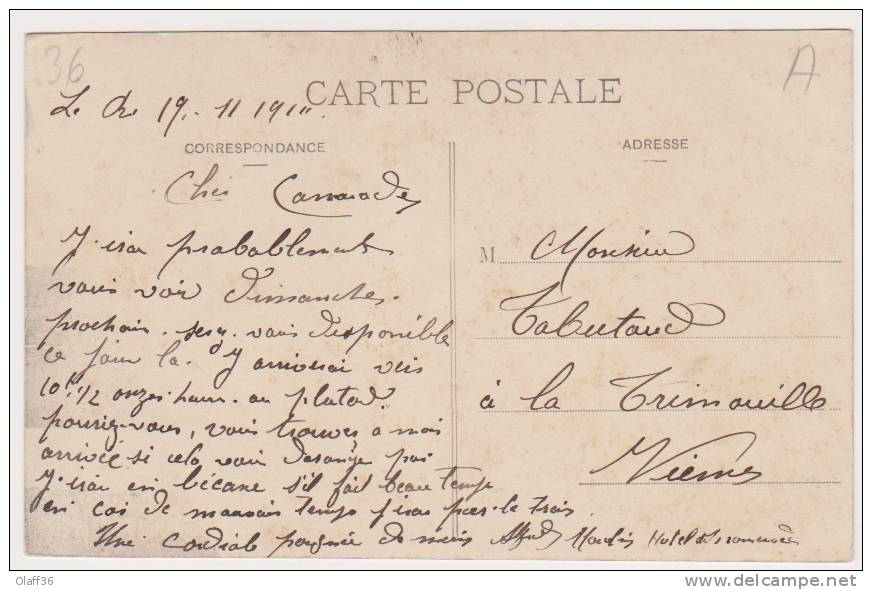 36
A
CARTE POSTALE
Le 19 - 11 191
CORRESPONDANCE
ADRESSE
Cher Camarade
J'irai probablement
vous voir Dimanche
prochain. serez-vous disponible
ce jour la. J'y arriverai vers
10h 1/2 onze heure. ou plutot
pouriez-vous, vous trouvez à mon
arrivée si cela vous derange pas
J'irai en bécane s'il fait beau temps
en cas de mauvais temps j'irai par le train
Une cordiale poignée de main Alfred Hotel
M Monsieur
Tabutaud
à la Trimouille
Vienne
Olaff36
www.delcampe.net